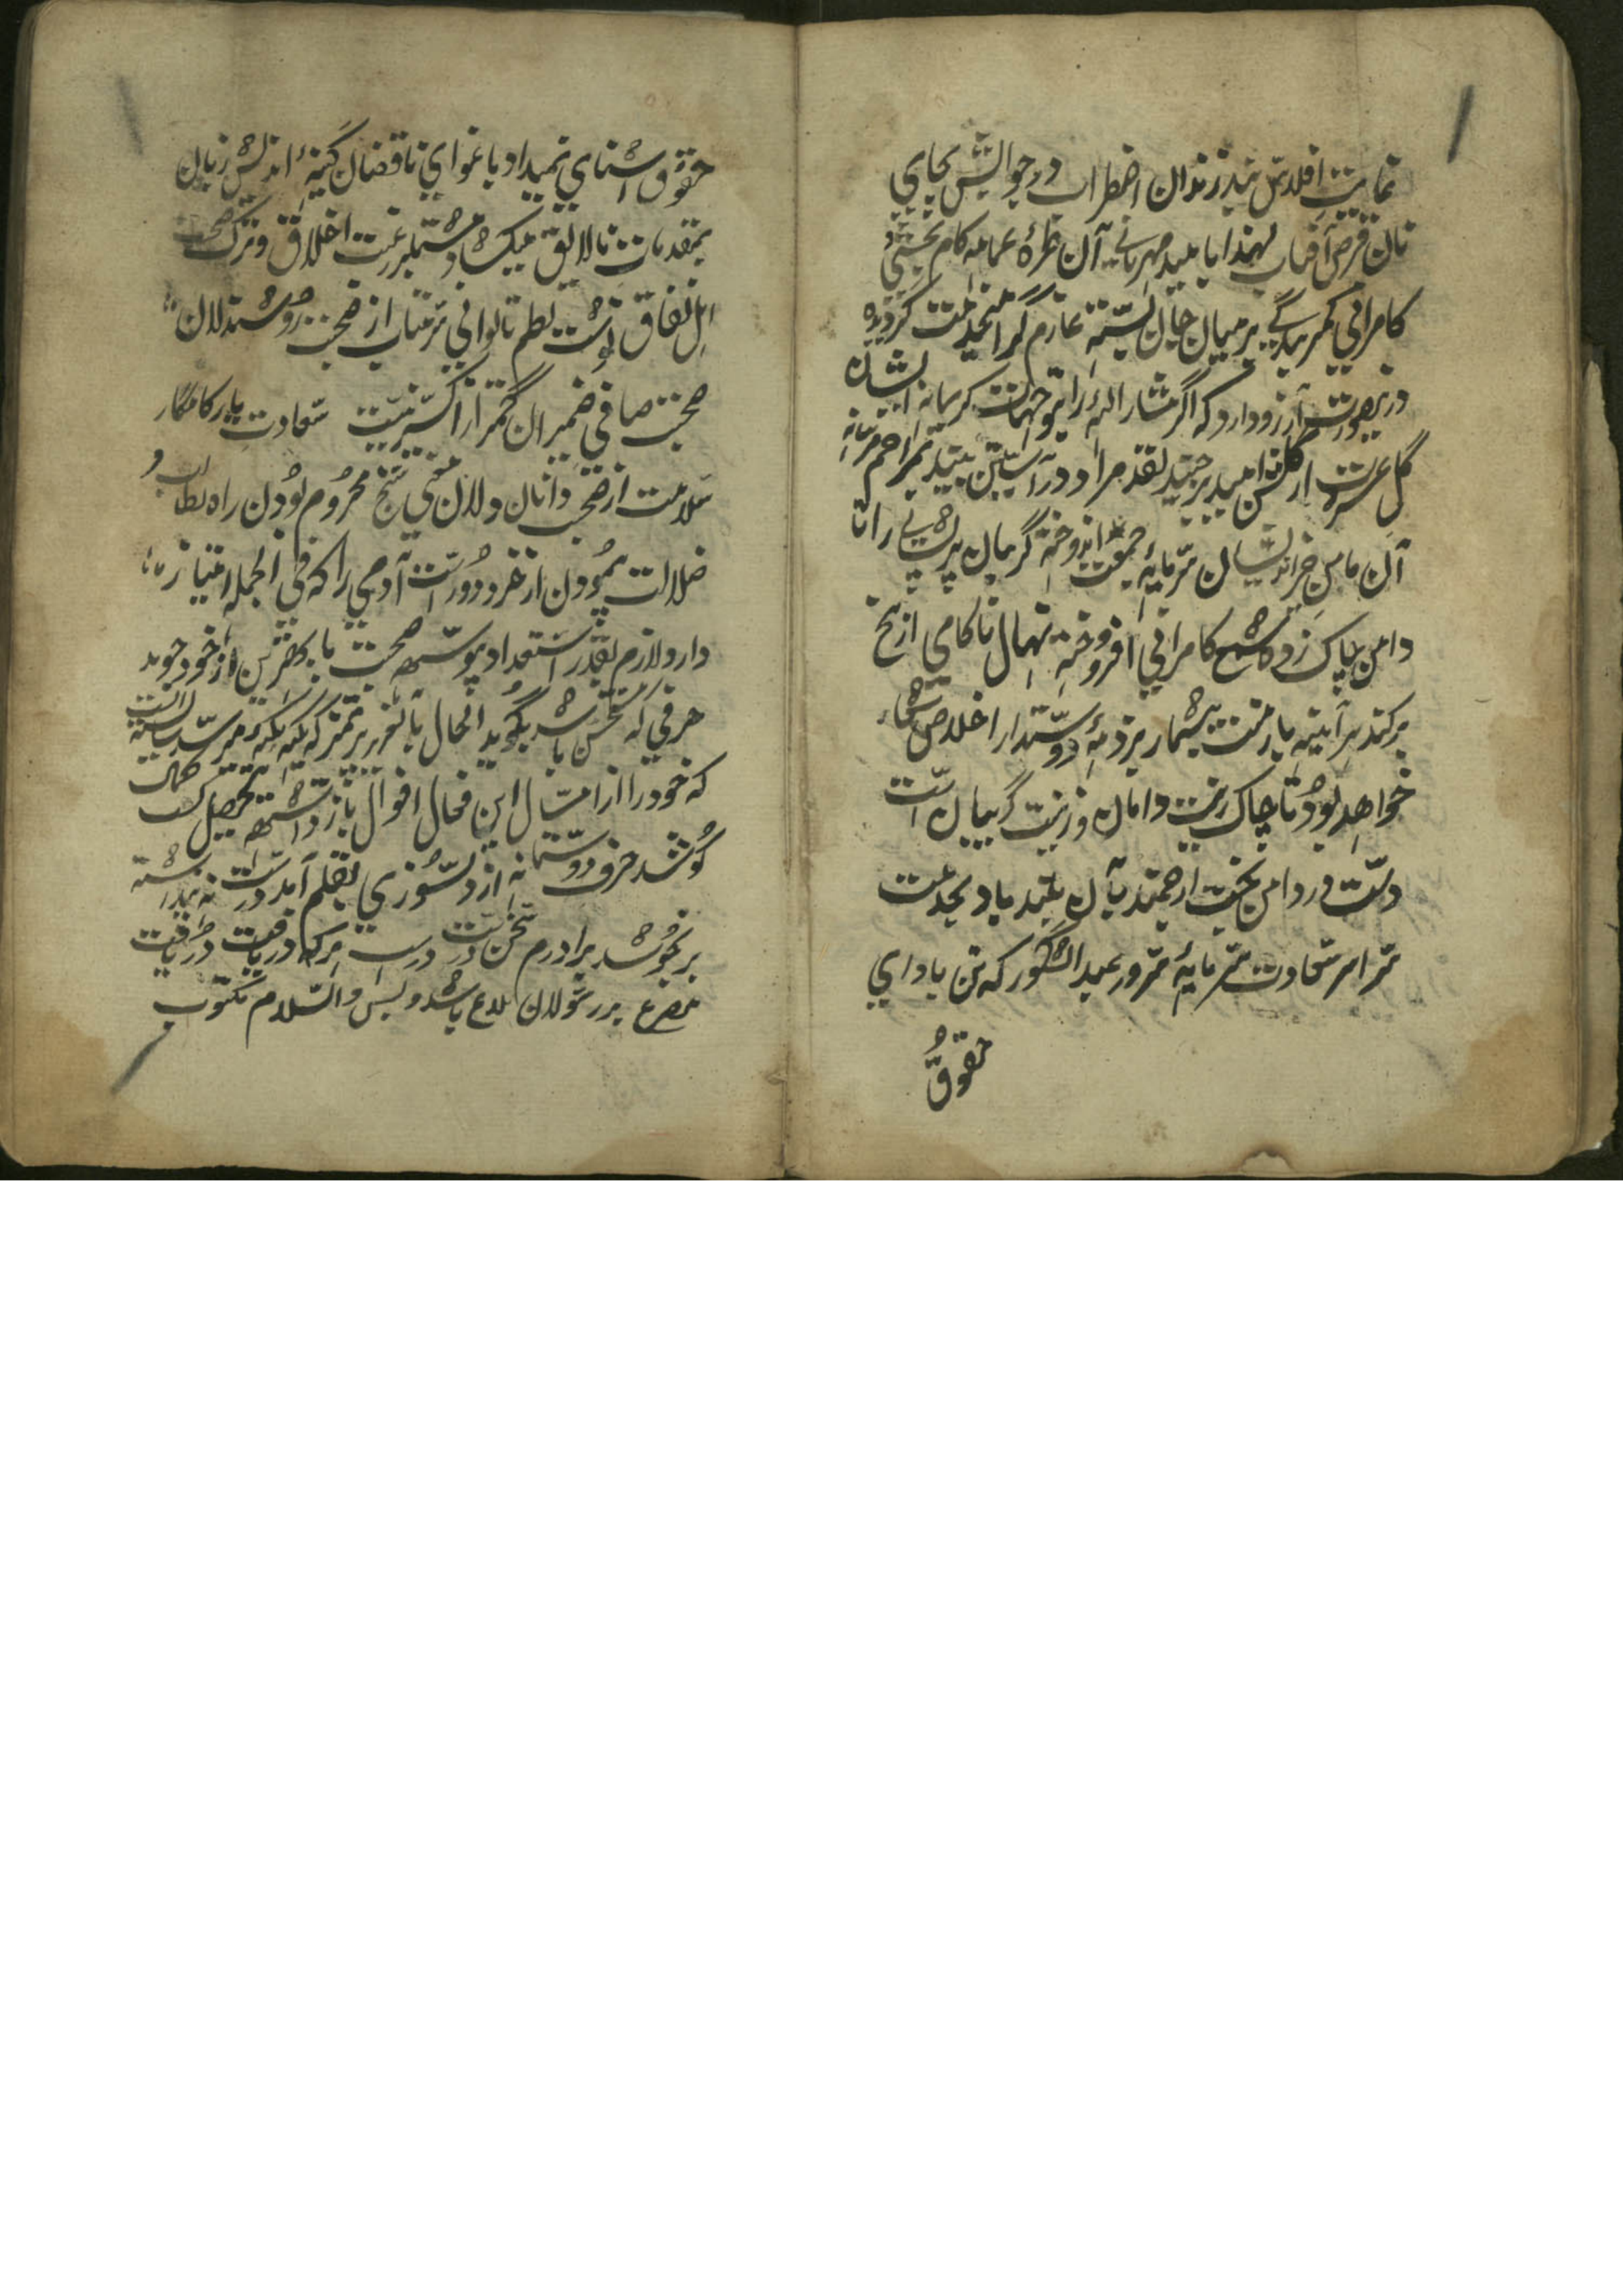 غایت افلاس نیز زندان اضطراب درجوالش بجای
نان قرص آفتاب لهذا بامید مهربانی آن طرهٔ عمامه کام بخشی و
کامرانی کمر بندگی برمیان جان بسته عازم گرامی خدمت گردیده
درینصورت آرزو دارد که اگر مشارالیه را بتوجهات کریمانه ایشان
گل عشرت از گلشن امید برچیند نقد مراد در آستین بیند بمراحم
آن مامن خیراندیشان سرمایه جمعیت اندوخته گریبان پریشانی را تا
دامن پاک زده شمع کامرانی افروخته نهال ناکامی از بیخ
برکند هرآینه بار منت بیشمار بر ذمهٔ دوستدار اخلاص
خواهد بود تا چاک زینت دامان و زینت گریبان است
دست در دامن بخت ارجمند بآن بلند باد بجدعت
سراسر سعادت سرمایهٔ سرور عبدالشکور که تن باداي
حقوق
حقوق اشنای نمیداد باغوای ناقصان کینهٔ اندیش زبان
بمقدمات نالایق میکشاد مشتملبر رغبت اخلاق و ترک صحبت
اهل نفاق نوشت نظم تا توانی سر متاب از صحبت روشندلان
صحبت صافی ضمیران کمتر از اکسیر نیست سعادت یار کامگار
سلامت از صحبت دانان دلان معنی سنج محروم بودن راه بطالت و
ضلالت پیمودن از خرد دور است آدمی را که فی الجمله امتیاز
دارد لازم بقدر استعداد پیوسته صحبت با بهترین از خود جوید
حرفی که مستحسن باشد بگوید الحال بآنعزیز پرتمیز که نکته بنکته میرسد بایسته است
که خود را از امثال این فحال اقوال باز داشته تحصیل کسب کمال
کوشد حرف دوستانه از دلسوزی بقلم آمد درشت نه پنداشته
برنجوشد برادرم سخن درست درست هرکه دریافت دریافت
مصرع بررسولان بلاغ باشد و بس والسلام مکتوب